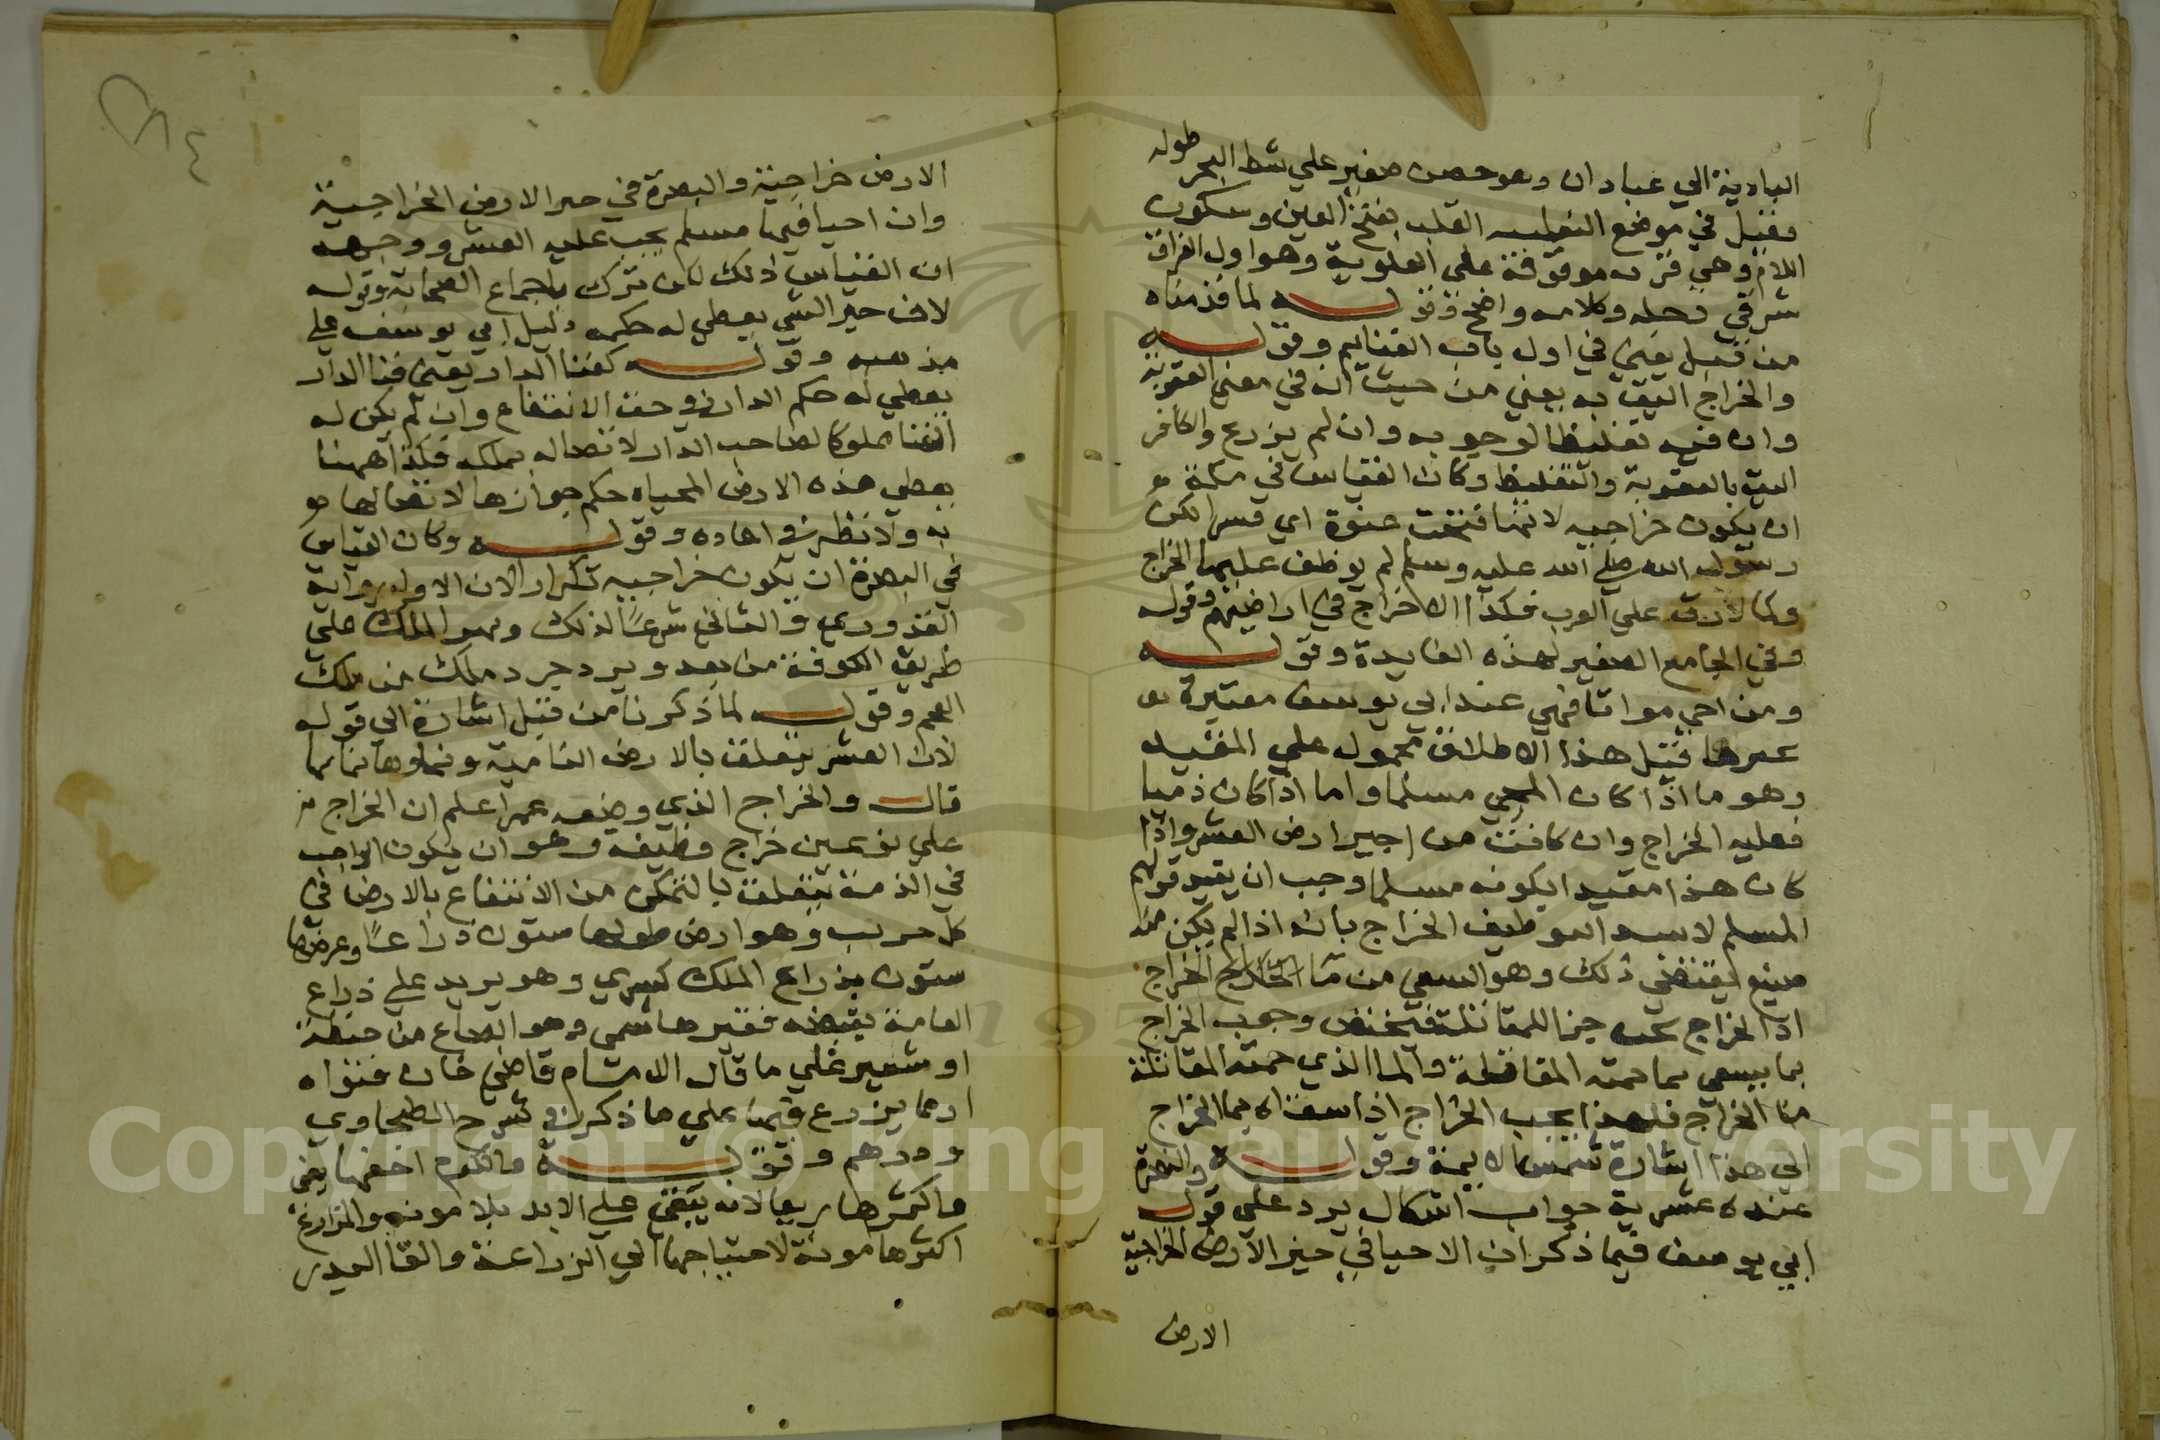 البادية الي عبادان وهو حصن صغير علي شط البحر طوله
فقيل في موضع التعلبيه العلث بفتح العين وسكون
اللام وهي قرية موقوفة علي العلوية وهو اول العراق
شرقي دجلة وكلامه واضح وقولـــه لما قدمناه
من قبل يعني في اول باب الغنايم وقولـــه
والخراج اليق به يعني من حيث انه في معني العقوبة
وان فيه تغليظا لوجوبه وان لم يزرع والكافر
اليق بالعقوبة والتغليظ وكان القياس في مكة
ان يكون خراجيه لانها فتحت عنوة اي قسرا لكن
رسول الله صلي الله عليه وسلم لم يوظف عليها الخراج
وكما لا رق علي العرب فكذا لا خراج في اراضيهم وقوله
وفي الجامع الصغير لهذه الفايدة وقولـــه
ومن احيي مواتا فهي عند ابي يوسف معتبرة
قيل هذا الاطلاق محمول علي المقيد
وهو ما اذا كان المحيي مسلما واما اذا كان ذميا
فعليه الخراج وان كانت من ارض العشر واذا
كان هذا مقيدا بكونه مسلما وجب ان يقيد قولهم
المسلم لا توظيف الخراج بانه اذا لم يكن منه
صنيع يقتضي ذلك وهو السقي من ماء الخراج
اذ الخراج يجب للمقاتلة فيختص وجوب الخراج
بما يسقي بما حمته المقاتلة والماء الذي حمته المقاتلة
ماء الخراج فلهذا يجب الخراج اذا سقاه بماء الخراج
الي هذا اشارة شمس الايمة وقولـــه والبصرة
عنده عشرية جواب اشكال يرد علي قول
ابي يوسف فيما ذكر ان الاحيا في حيز الارض الخراجية
الارض
٤
الارض خراجية والبصرة في حيز الارض الخراجية
وان احيا فيها مسلم يجب عليه العشر ووجهه
ان القياس ذلك لكن ترك باجماع الصحابة وقوله
لان حيز الشي يعطي له حكمه دليل ابي يوسف علي
مذهبه وقولـــه كفنا الدار يعني فنا الدار
يعطي له حكم الدار في حق الانتفاع وان لم يكن له
الفنا مملوكا لصاحب الدار لاتصاله بملكه فكذا ههنا
يعطي هذه الارض المحياه حكم جوارها لاتصالها
به وقولـــه وكان القياس
في البصرة ان يكون خراجيه تكرار لان الاول رواية
القدوري والثاني لذلك ونهر الملك علي
طريق الكوفة من بغداد ويزدجرد ملك من ملك
العجم وقولـــه لما ذكرنا من قبل اشارة الي قوله
لان العشر يتعلق بالارض النامية ونماوها بمايها
قال والخراج الذي وضعه عمر اعلم ان الخراج
علي نوعين خراج وظيفة وهو ان يكون الواجب
في الذمة يتعلق بالتمكن من الانتفاع بالارض في
كل جريب وهو ارض طولها ستون ذراعا وعرضها
ستون بذراع الملك كسري وهو يزيد علي ذراع
العامة بقبضه قفيز هاشمي وهو الصاع من حنطة
او شعير علي ما قال الامام قاضي خان في فتواه
او مما يزرع فيها علي ما ذكر في شرح الطحاوي
ودرهم وقولـــه فالكرم اخفها يعني
واكثرها ريعا لانه يبقي علي الابد بلا مونة والمزارع
اكثرها مونة لاحتياجها الي الزراعة والقا البذر